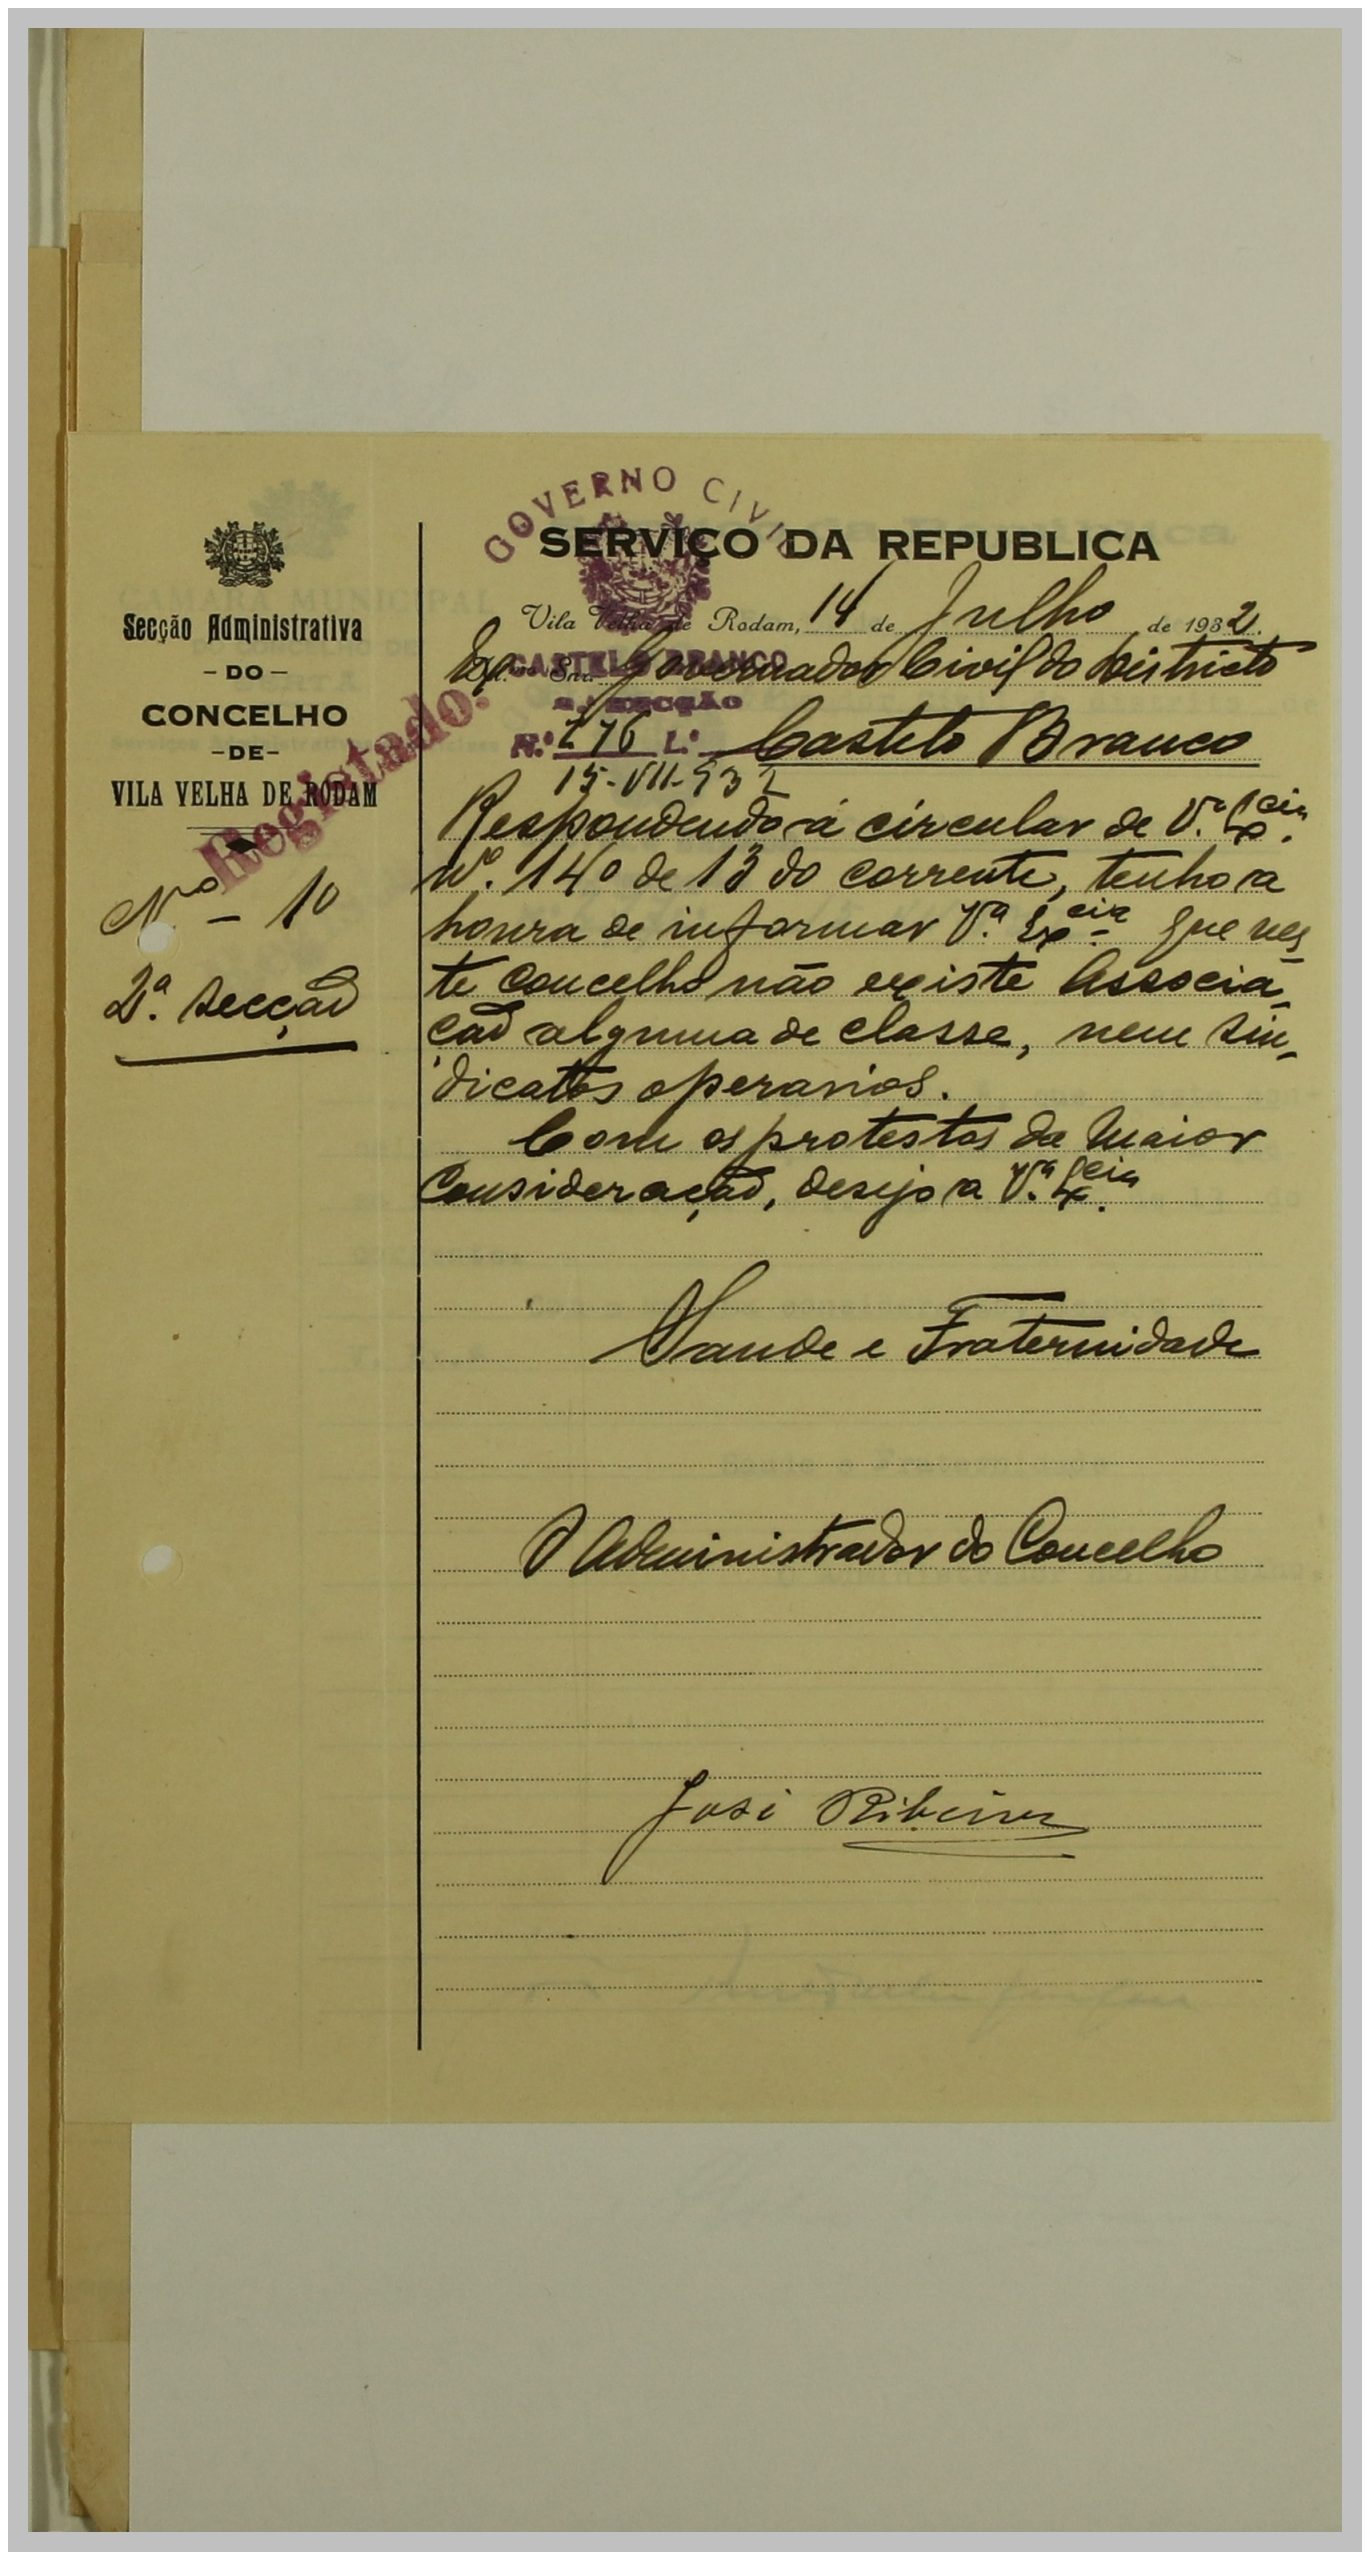 Secção Administrativa
- DO -
CONCELHO
- DE -
VILA VELHA DE RODAM
Registado.
Nº - 10
2ª. secção
GOVERNO CIVIL
SERVIÇO DA REPUBLICA
Vila Velha de Rodam, 14 de Julho de 1932.
Exmo Snr. Governador Civil do Districto
CASTELO BRANCO
2.ª SECÇÃO
N.º 276 L.º
Castelo Branco
15-VII-932
Respondendo á circular de V.ª Excia.
Nº. 140 de 13 do corrente, tenho a
honra de informar V.ª Excia que nes-
te concelho não existe Associa-
ção alguma de classe, nem sin-
dicatos operarios.
Com os protestos da maior
Consideração, desejo a V.ª Excia.
Saude e Fraternidade
O Administrador do Concelho
José Ribeiro